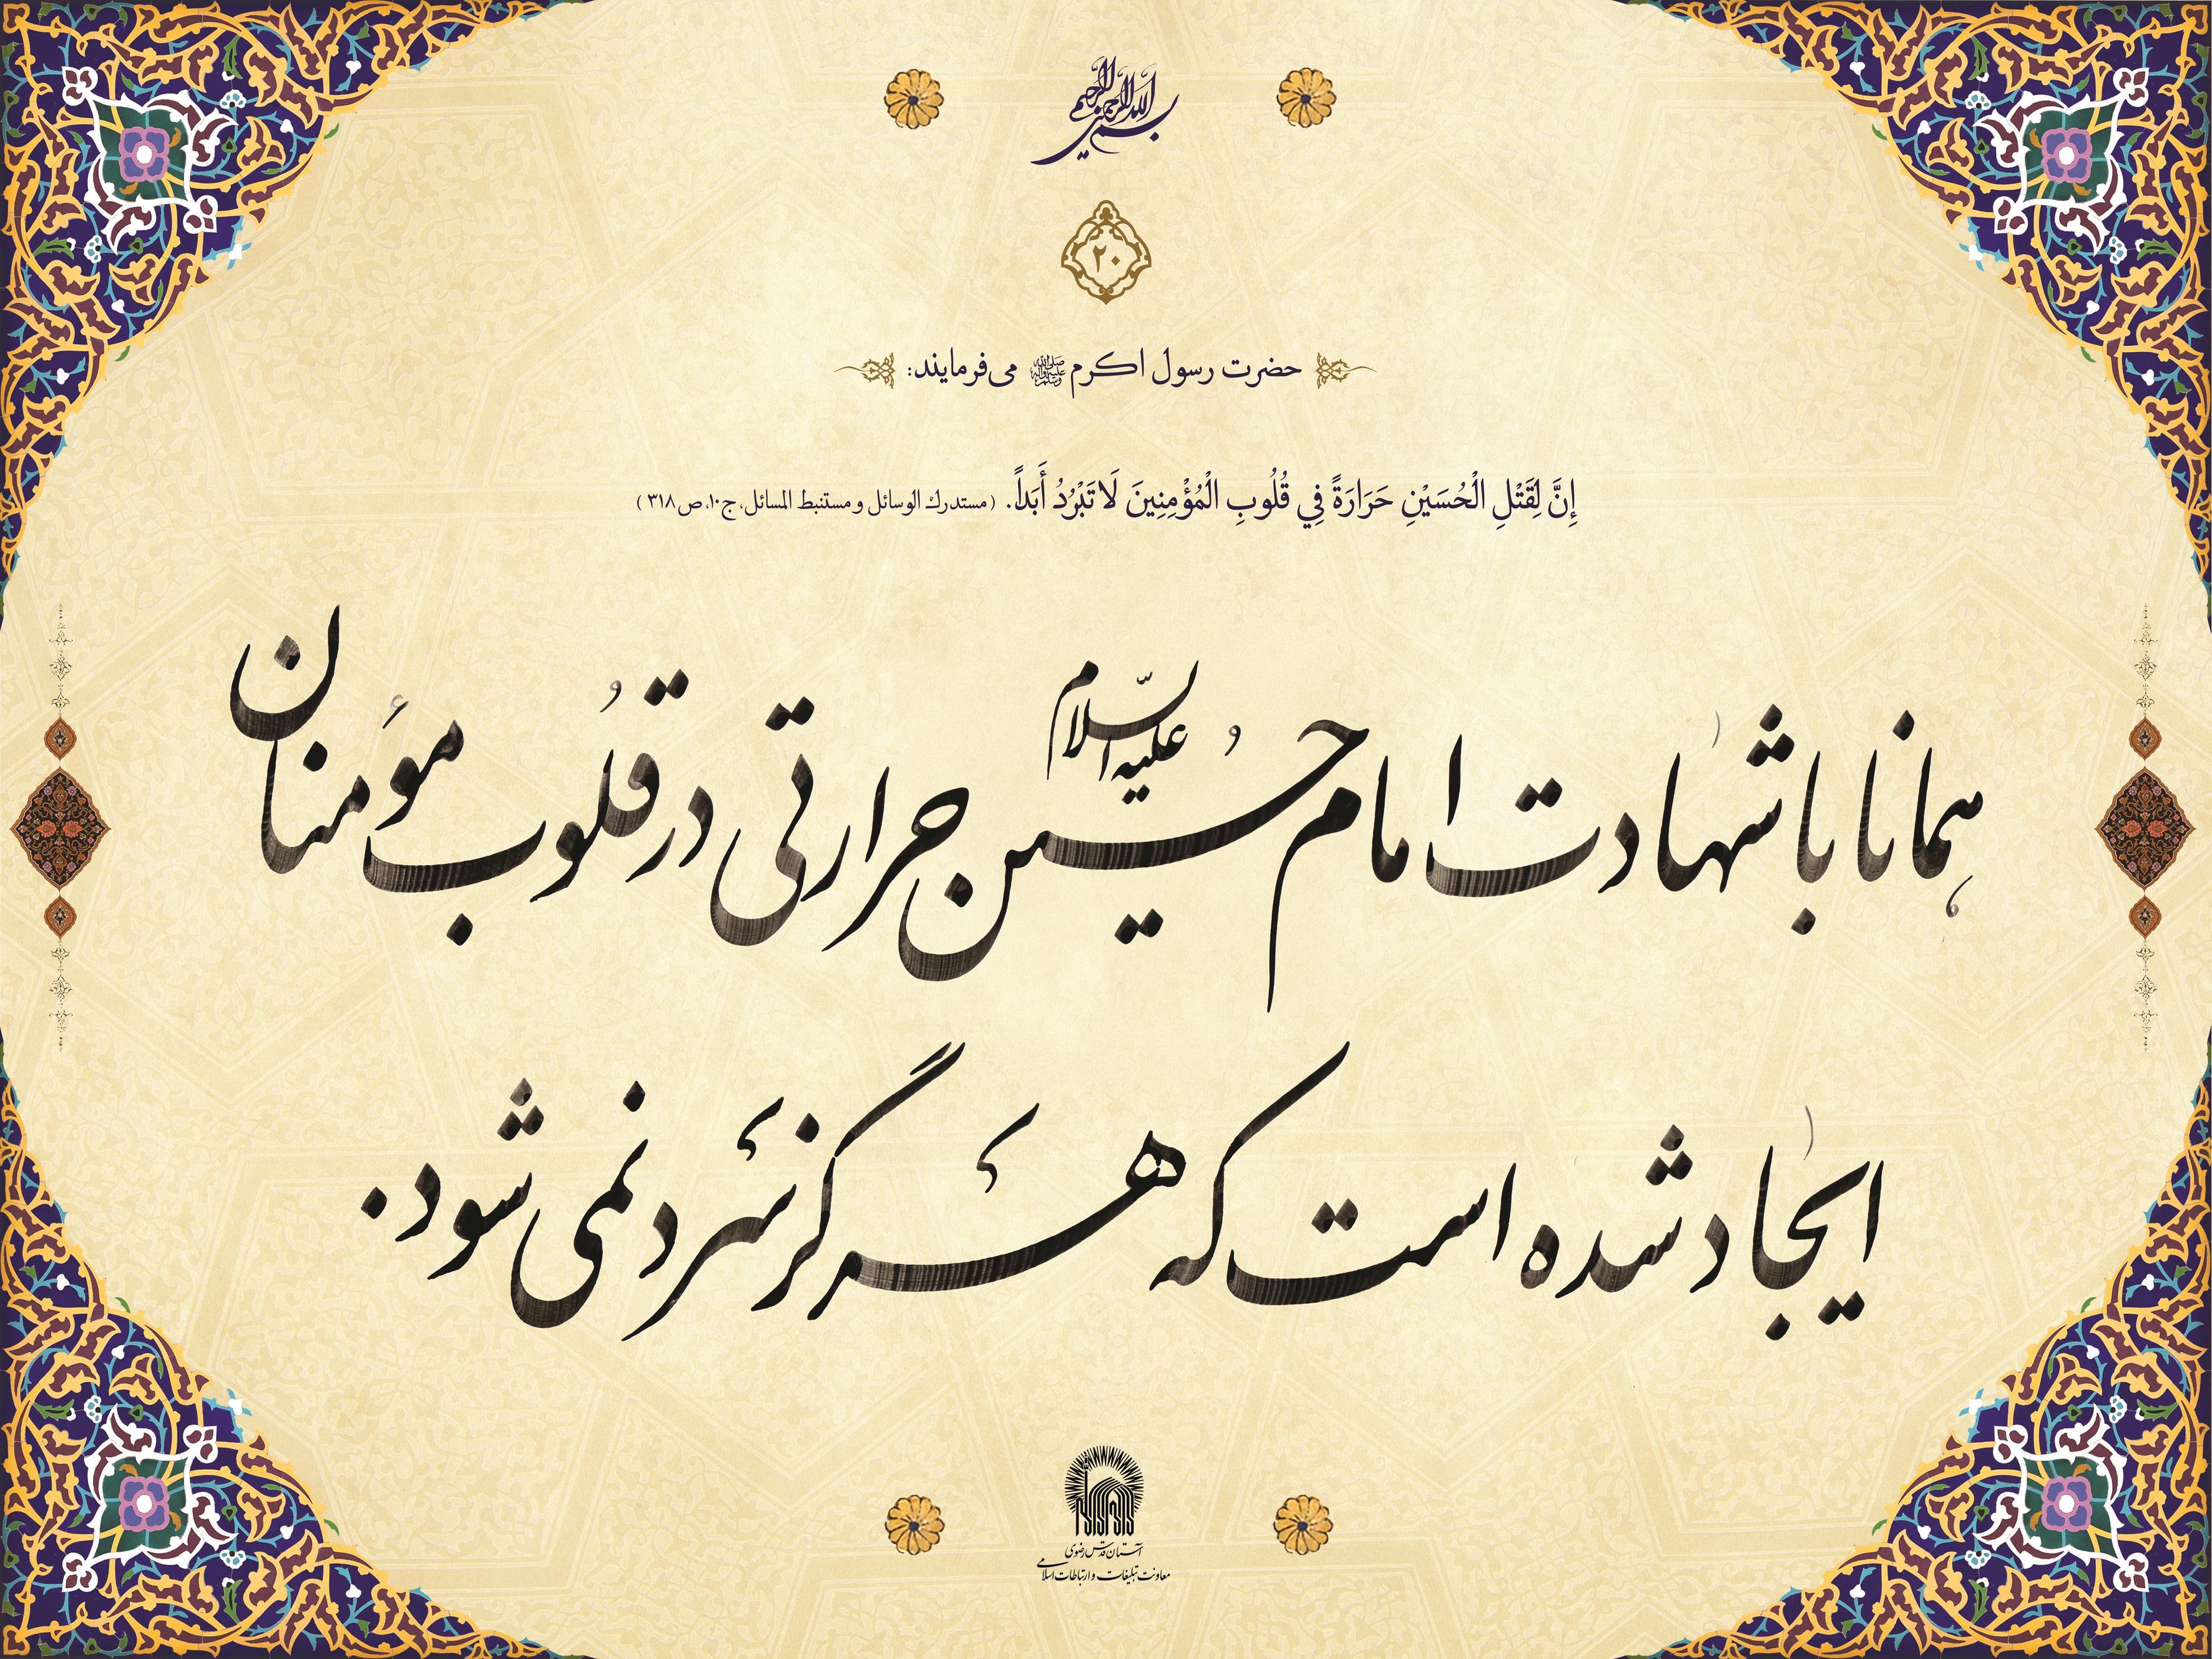 بسم الله الرحمن الرحیم
۲۰
حضرت رسول اکرم ﷺ می‌فرمایند:
إِنَّ لِقَتْلِ الْحُسَيْنِ حَرَارَةً فِي قُلُوبِ الْمُؤْمِنِينَ لَا تَبْرُدُ أَبَداً. (مستدرك الوسائل و مستنبط المسائل، ج۱۰، ص۳۱۸)
همانا با شهادت امام حُسین علیه السّلام حرارتی در قُلوب مؤمنان
ایجاد شده است که هرگز سرد نمی شود.
آستان قدس رضوی
معاونت تبلیغات و ارتباطات اسلامی